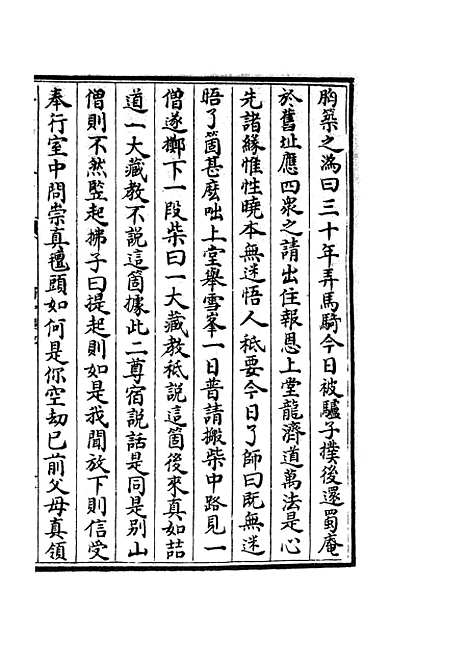 胸築之溈曰三十年弄馬騎今日被驢子撲後還蜀庵
於舊址應四衆之請出住報恩上堂龍濟道萬法是心
先諸緣惟性曉本無迷悟人秪要今日了師曰既無迷
晤了箇甚麽咄上堂舉雪峯一日普請搬柴中路見一
僧遂擲下一段柴曰一大藏教秪說這箇後來真如喆
道一大藏教不說這箇據此二尊宿說話是同是別山
僧則不然竪起拂子曰提起則如是我聞放下則信受
奉行室中問崇真氊頭如何是你空劫已前父母真領